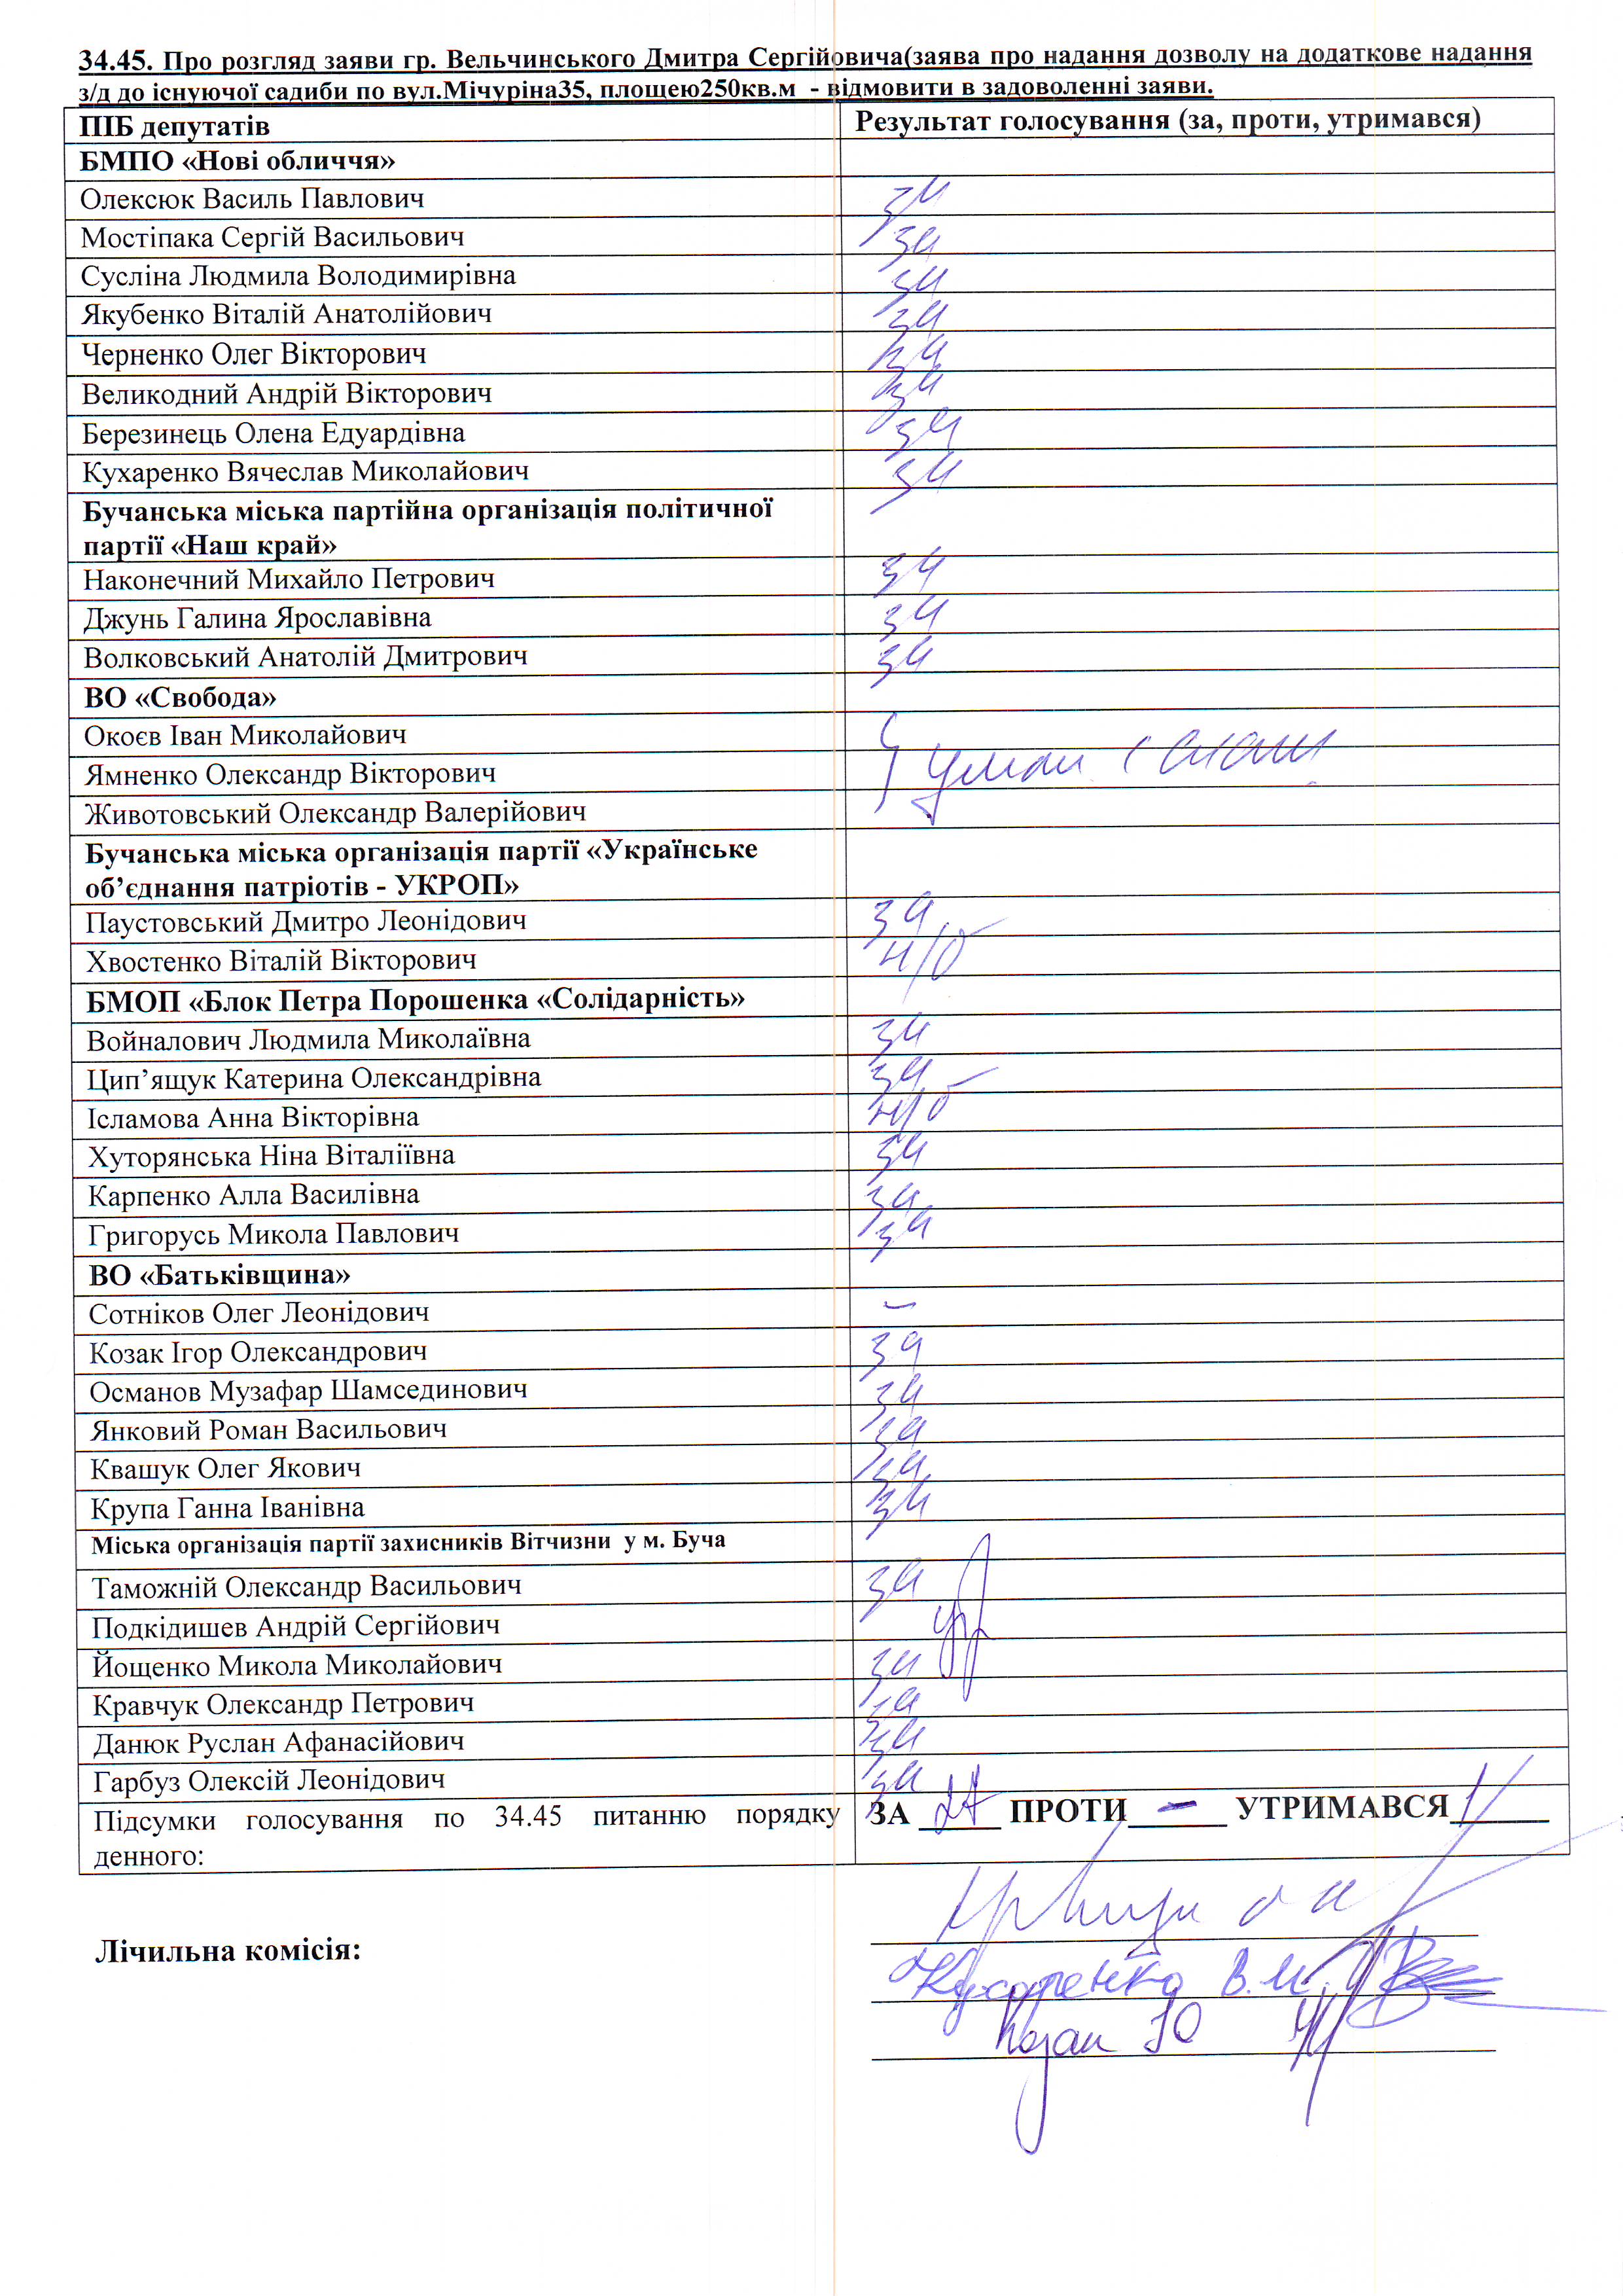 34.45. Про розгляд заяви гр. Вельчинського Дмитра Сергійовича(заява про надання дозволу на додаткове надання
з/д до існуючої садиби по вул.Мічуріна35, площею250кв.м - відмовити в задоволенні заяви.
ПІБ депутатів Результат голосування (за, проти, утримався)
БМПО «Нові обличчя»
Олексюк Василь Павлович за
Мостіпака Сергій Васильович за
Сусліна Людмила Володимирівна за
Якубенко Віталій Анатолійович за
Черненко Олег Вікторович за
Великодний Андрій Вікторович за
Березинець Олена Едуардівна за
Кухаренко Вячеслав Миколайович за
Бучанська міська партійна організація політичної
партії «Наш край»
Наконечний Михайло Петрович за
Джунь Галина Ярославівна за
Волковський Анатолій Дмитрович за
ВО «Свобода»
Окоєв Іван Миколайович
Ямненко Олександр Вікторович
Животовський Олександр Валерійович
Бучанська міська організація партії «Українське
об’єднання патріотів - УКРОП»
Паустовський Дмитро Леонідович за
Хвостенко Віталій Вікторович н/б
БМОП «Блок Петра Порошенка «Солідарність»
Войналович Людмила Миколаївна за
Цип’ящук Катерина Олександрівна за
Ісламова Анна Вікторівна н/б
Хуторянська Ніна Віталіївна за
Карпенко Алла Василівна за
Григорусь Микола Павлович за
ВО «Батьківщина»
Сотніков Олег Леонідович –
Козак Ігор Олександрович за
Османов Музафар Шамсединович за
Янковий Роман Васильович за
Квашук Олег Якович за
Крупа Ганна Іванівна за
Міська організація партії захисників Вітчизни у м. Буча
Таможній Олександр Васильович за
Подкідишев Андрій Сергійович
Йощенко Микола Миколайович за
Кравчук Олександр Петрович за
Данюк Руслан Афанасійович за
Гарбуз Олексій Леонідович за
Підсумки голосування по 34.45 питанню порядку ЗА 27 ПРОТИ – УТРИМАВСЯ 1
денного:
Лічильна комісія:
Кухаренко В.М.
Козак ІО